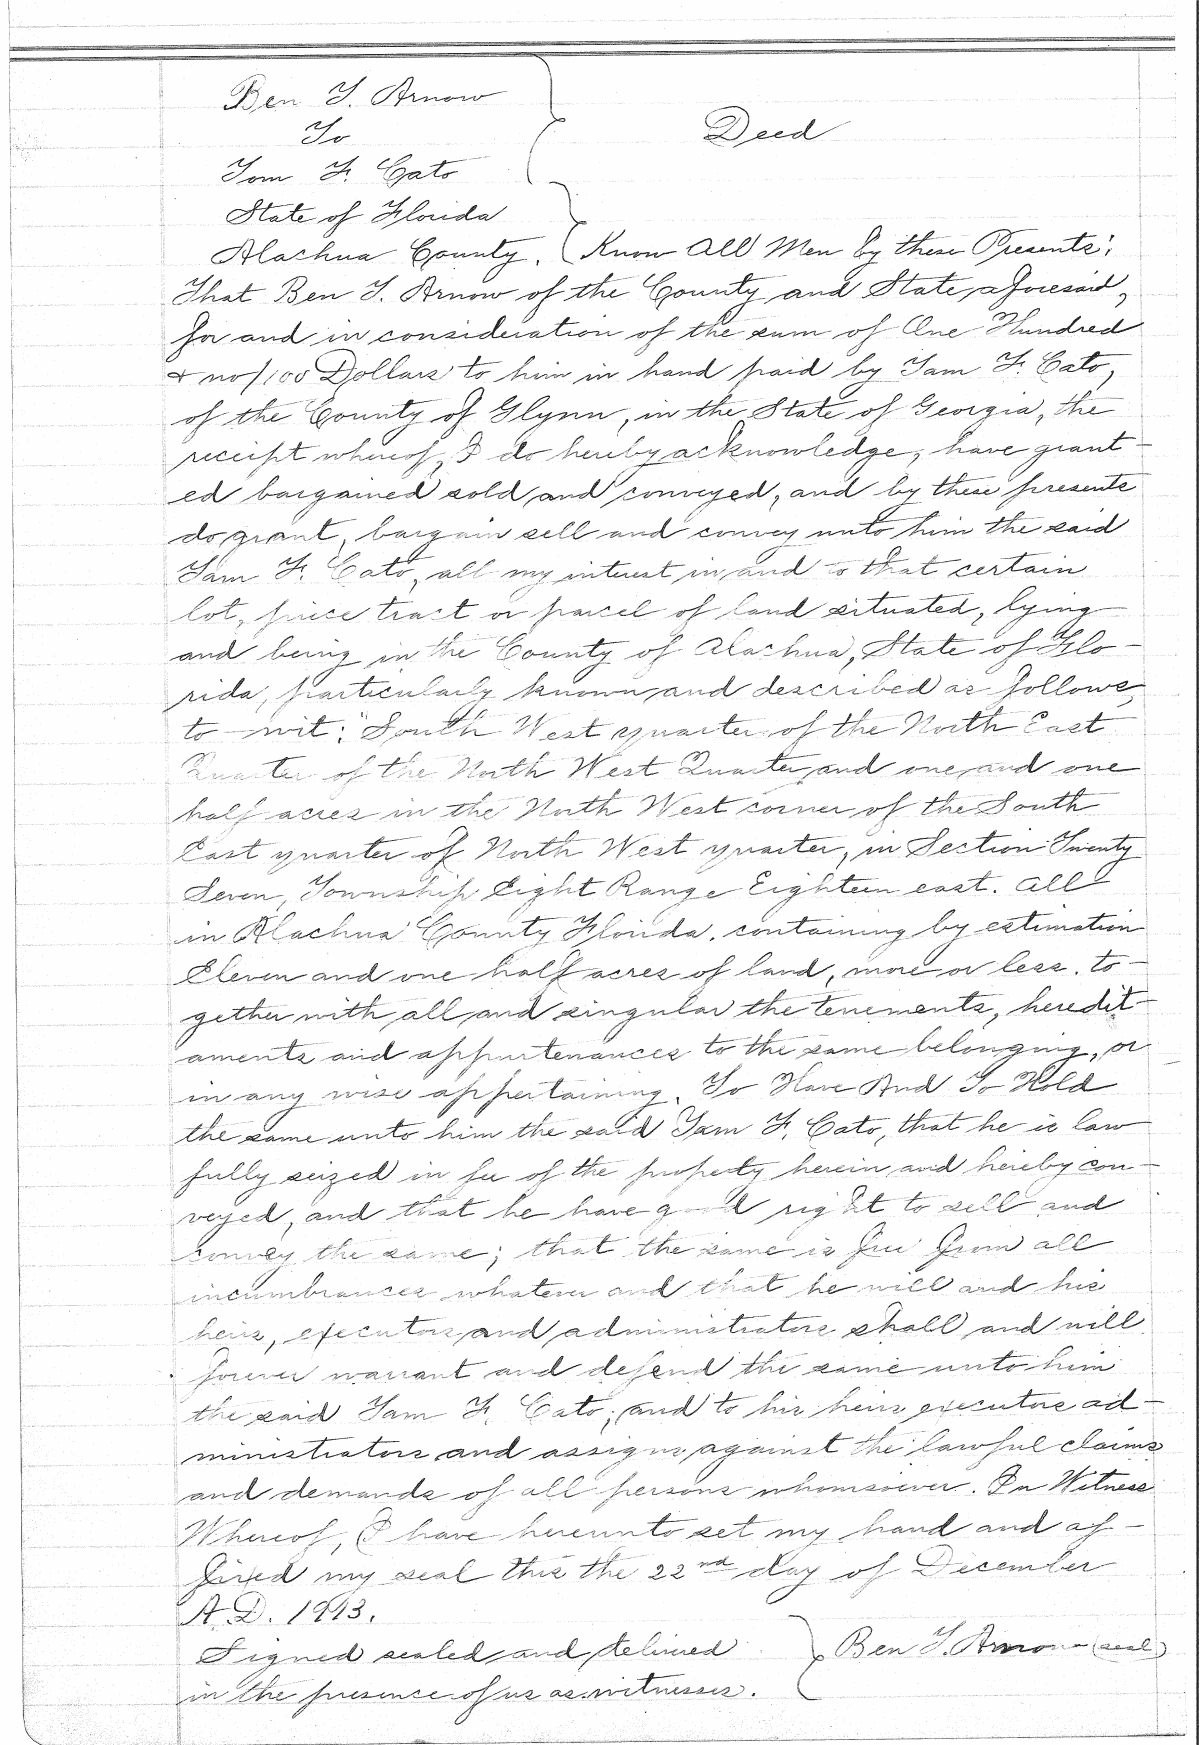 Ben I. Arnow
To
Tom F. Cato
Deed
State of Florida
Alachua County. Know All Men by these Presents:
That Ben I. Arnow of the County and State aforesaid,
for and in consideration of the sum of One Hundred
& no/100 Dollars to him in hand paid by Tam F. Cato,
of the County of Glynn, in the State of Georgia, the
receipt whereof, I do hereby acknowledge, have grant-
ed bargained sold and conveyed, and by these presents
do grant, bargain sell and convey unto him the said
Tam F. Cato, all my interest in and to that certain
lot, piece tract or parcel of land situated, lying
and being in the County of Alachua, State of Flo-
rida, particularly known and described as follows,
to-wit: "South West quarter of the North East
Quarter of the North West Quarter and one and one
half acres in the North West corner of the South
East quarter of North West quarter, in Section Twenty
Seven, Township Eight Range Eighteen east. All
in Alachua County Florida. containing by estimation
Eleven and one half acres of land, more or less. to-
gether with all and singular the tenements, heredit-
aments and appurtenances to the same belonging, or
in any wise appertaining. To Have And To Hold
the same unto him the said Tam F. Cato, that he is law
fully seized in fee of the property herein and hereby con-
veyed, and that he have good right to sell and
convey the same; that the same is free from all
incumbrances whatever and that he will and his
heirs, executors and administrators shall and will
forever warrant and defend the same unto him
the said Tam F. Cato; and to his heirs executors ad-
ministrators and assigns against the lawful claims
and demands of all persons whomsoever. In Witness
Whereof, I have hereunto set my hand and af-
fixed my seal this the 22nd day of December
A.D. 1913.
Signed sealed and delivered Ben I. Arnow (seal)
in the presence of us as witnesses.